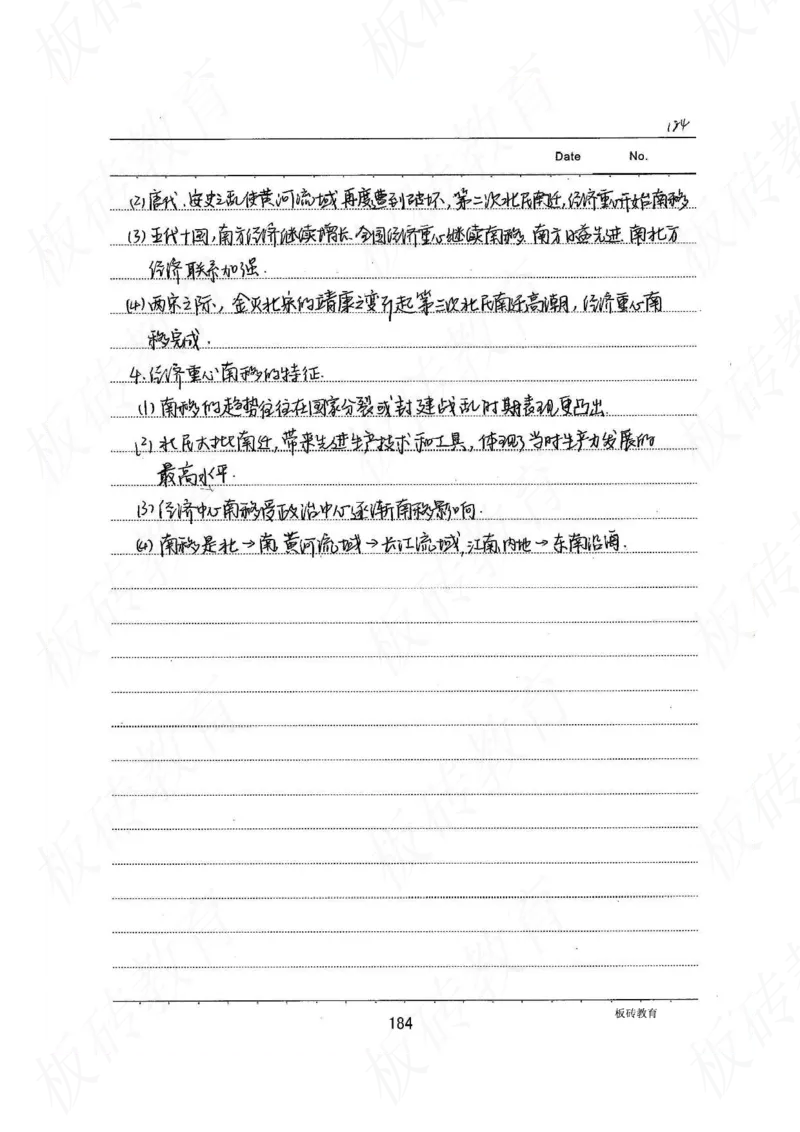 184
Date No.
(2)唐代,安史之乱使黄河流域再度遭到破坏,第二次北民南迁,经济重心开始南移
(3)五代十国,南方经济继续增长.全国经济重心继续南移.南方日益先进.南北方
经济联系加强.
(4)两宋之际,金灭北宋的靖康之变引起第三次北民南迁高潮,经济重心南
移完成.
4.经济重心南移的特征.
(1)南移的趋势往往在国家分裂或封建战乱时期表现更凸出.
(2)北民大批南迁,带来先进生产技术和工具,体现了当时生产力发展的
最高水平.
(3)经济中心南移受政治中心逐渐南移影响.
(4)南移是北→南.黄河流域→长江流域,江南内地→东南沿海.
184
板砖教育